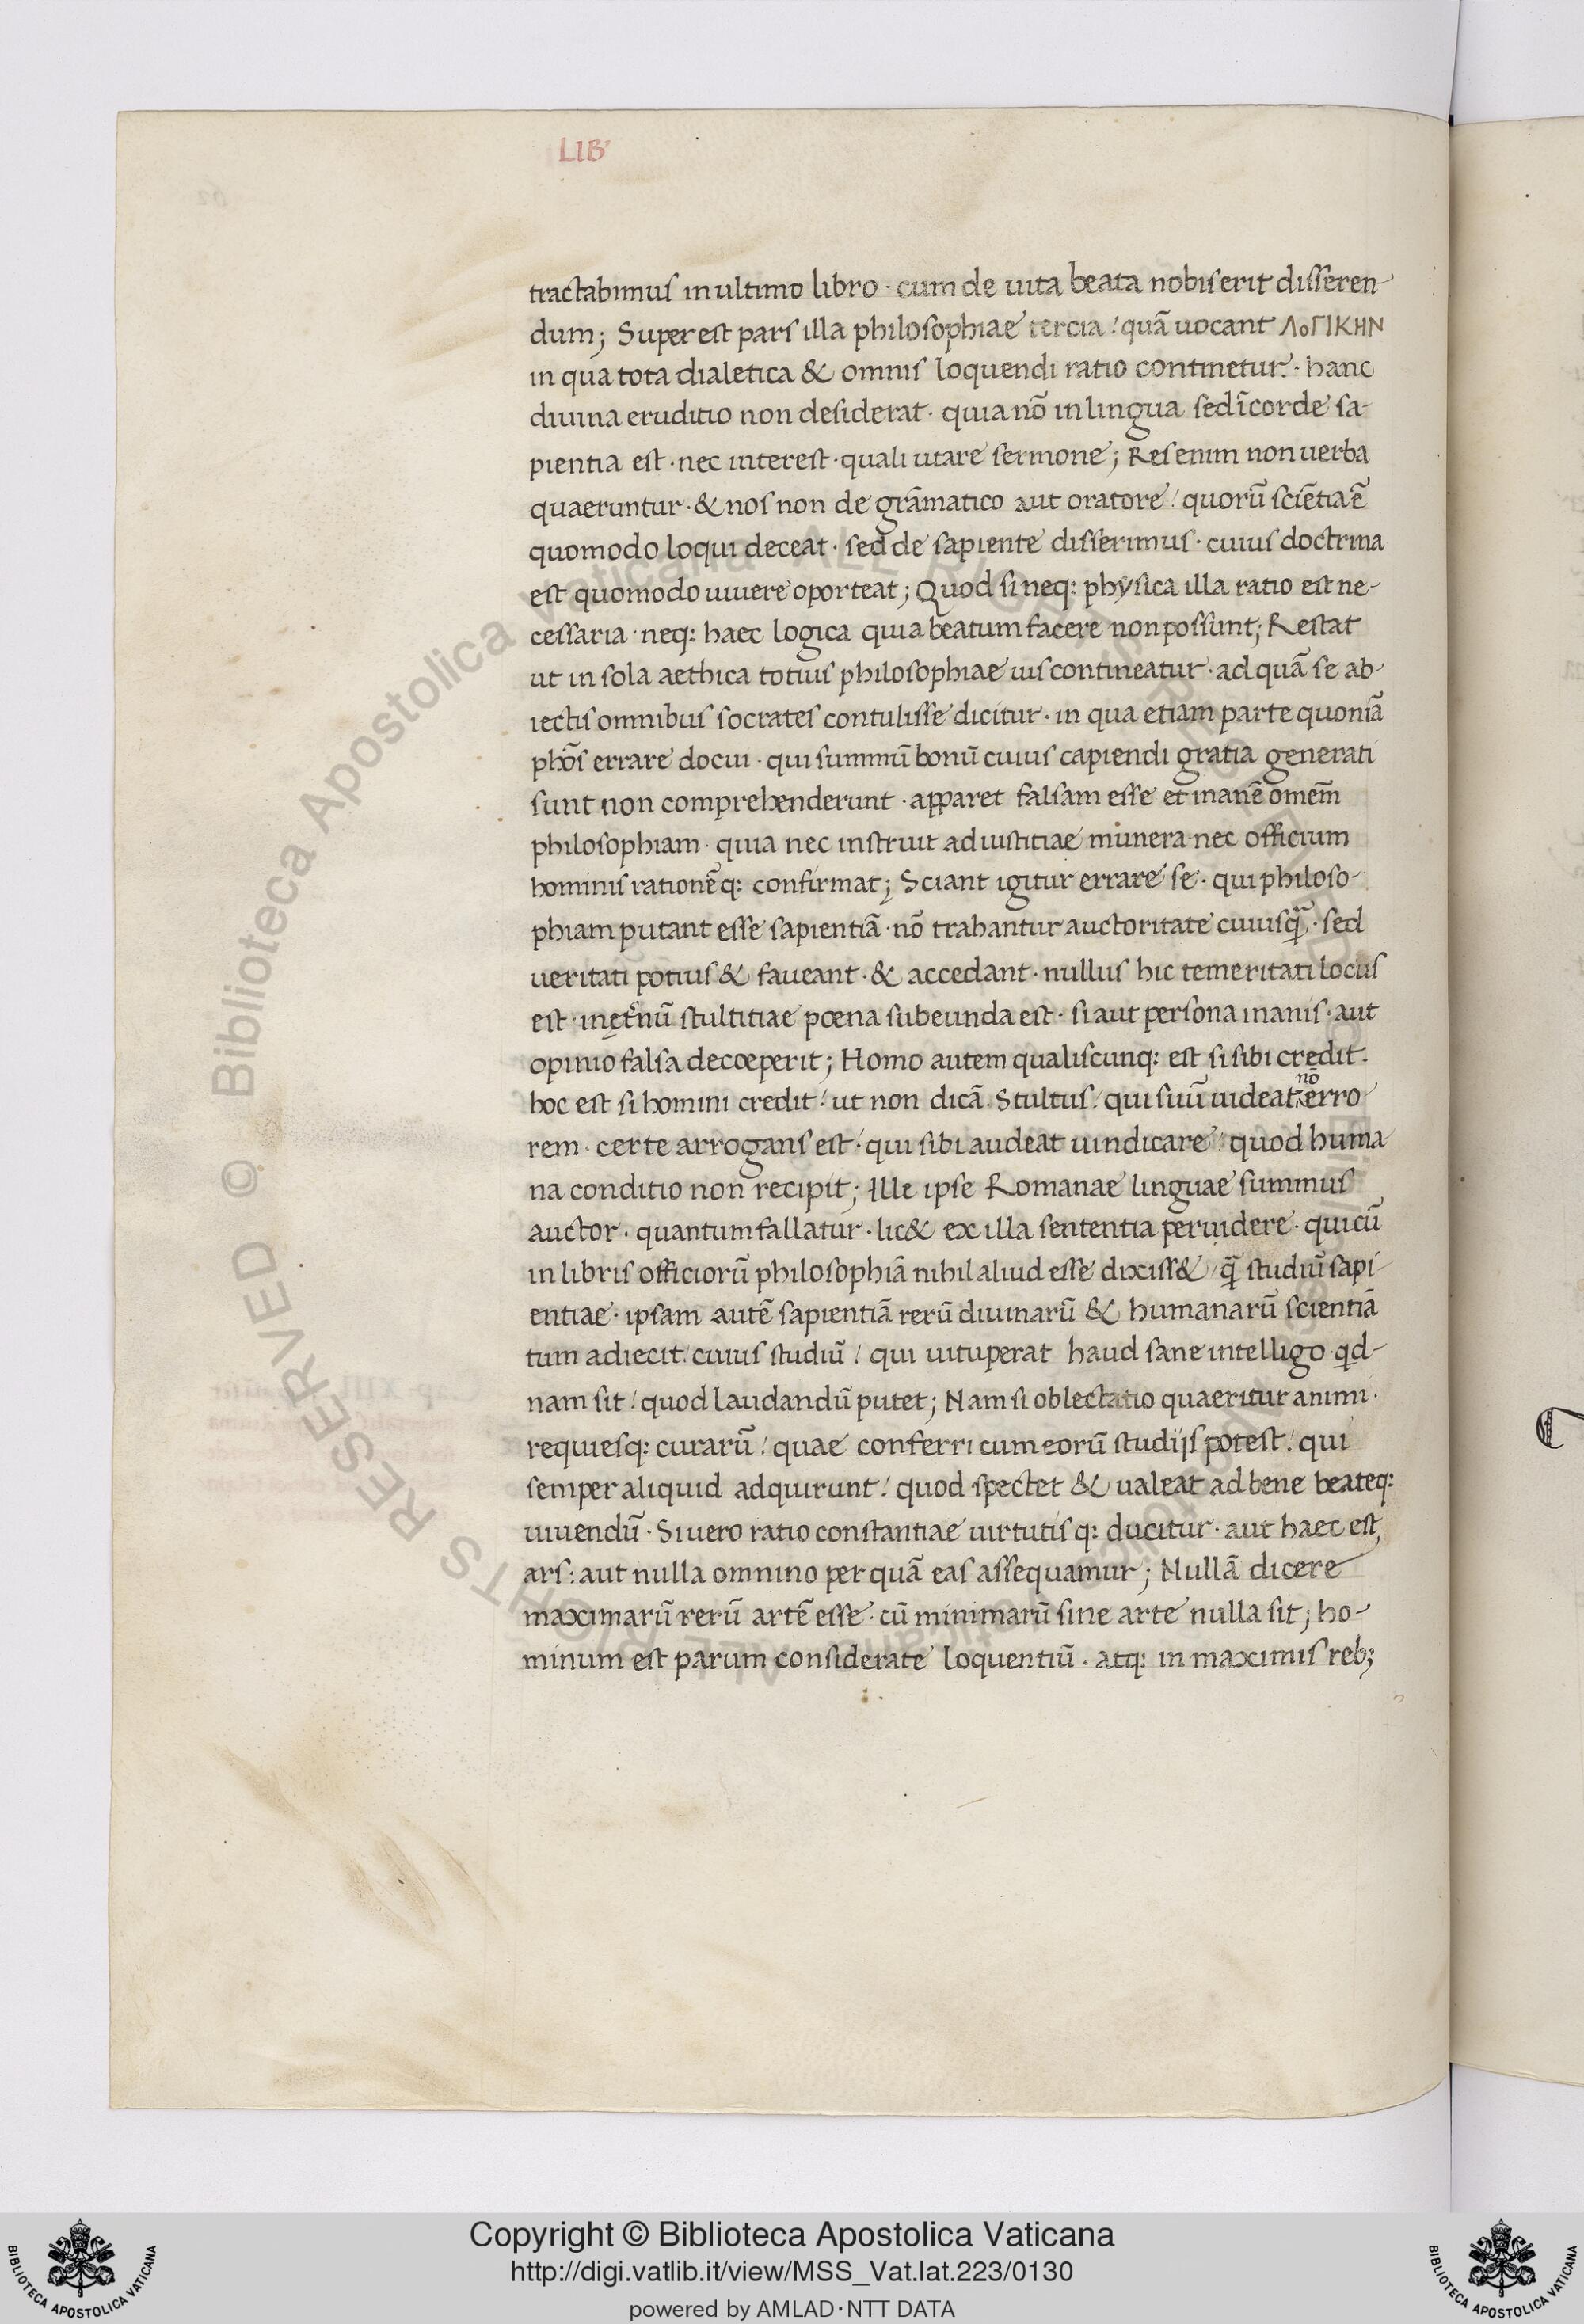 LIB
tractabimus in ultimo libro · cum de uita beata nobis erit disseren-
dum; Superest pars illa philosophiae tercia / quā uocant ΛΟΓΙΚΗΝ
in qua tota dialetica & omnis loquendi ratio continetur · hanc
diuina eruditio non desiderat · quia nō in lingua sed ī corde sa-
pientia est · nec interest · quali utare sermone; Res enim non uerba
quaeruntur · & nos non de grāmatico aut oratore / quorū sciētia ē
quomodo loqui deceat · sed de sapiente disserimus · cuius doctrina
est quomodo uiuere oporteat; Quod si neq: physica illa ratio est ne-
cessaria · neq: haec logica quia beatum facere non possunt; Restat
ut in sola aethica totius philosophiae uis contineatur · ad quā se ab-
iectis omnibus socrates contulisse dicitur · in qua etiam parte quoniā
phōs errare docui · qui summū bonū cuius capiendi gratia generati
sunt non comprehenderunt · apparet falsam esse et inanē omēm
philosophiam · quia nec instruit ad iustitiae munera nec officium
hominis rationēq: confirmat; Sciant igitur errare se · qui philoso-
phiam putant esse sapientiā · nō trahantur auctoritate cuiusq̄ · sed
ueritati potius & faueant · & accedant · nullus hic temeritati locus
est · in ęt̄nū stultitiae poena subeunda est · si aut persona inanis · aut
opinio falsa decoeperit; Homo autem qualiscunq: est si sibi credit ·
hoc est si homini credit / ut non dicā Stultus / qui suū uideat nō erro-
rem · certe arrogans est · qui sibi audeat uindicare / quod huma
na conditio non recipit; Ille ipse Romanae linguae summus
auctor · quantum fallatur · lic& ex illa sententia peruidere · qui cū
in libris officiorū philosophiā nihil aliud esse dixiss& / q̄ studiū sapi-
entiae · ipsam autē sapientiā rerū diuinarū & humanarū scientiā
tum adiecit / cuius studiū / qui uituperat haud sane intelligo qd-
nam sit / quod laudandū putet; Nam si oblectatio quaeritur animi ·
requiesq: curarū / quae conferri cum eorū studijs potest / qui
semper aliquid adquirunt / quod spectet & ualeat ad bene beateq:
uiuendū · Si uero ratio constantiae uirtutisq: ducitur · aut haec est
ars: aut nulla omnino per quā eas assequamur; Nullā dicere
maximarū rerū artē esse · cū minimarū sine arte nulla sit; ho-
minum est parum considerate loquentiū · atq: in maximis reb;
© Biblioteca Apostolica Vaticana ALL RIGHTS RESERVED
Copyright © Biblioteca Apostolica Vaticana
http://digi.vatlib.it/view/MSS_Vat.lat.223/0130
powered by AMLAD·NTT DATA
BIBLIOTECA APOSTOLICA VATICANA
BIBLIOTECA APOSTOLICA VATICANA